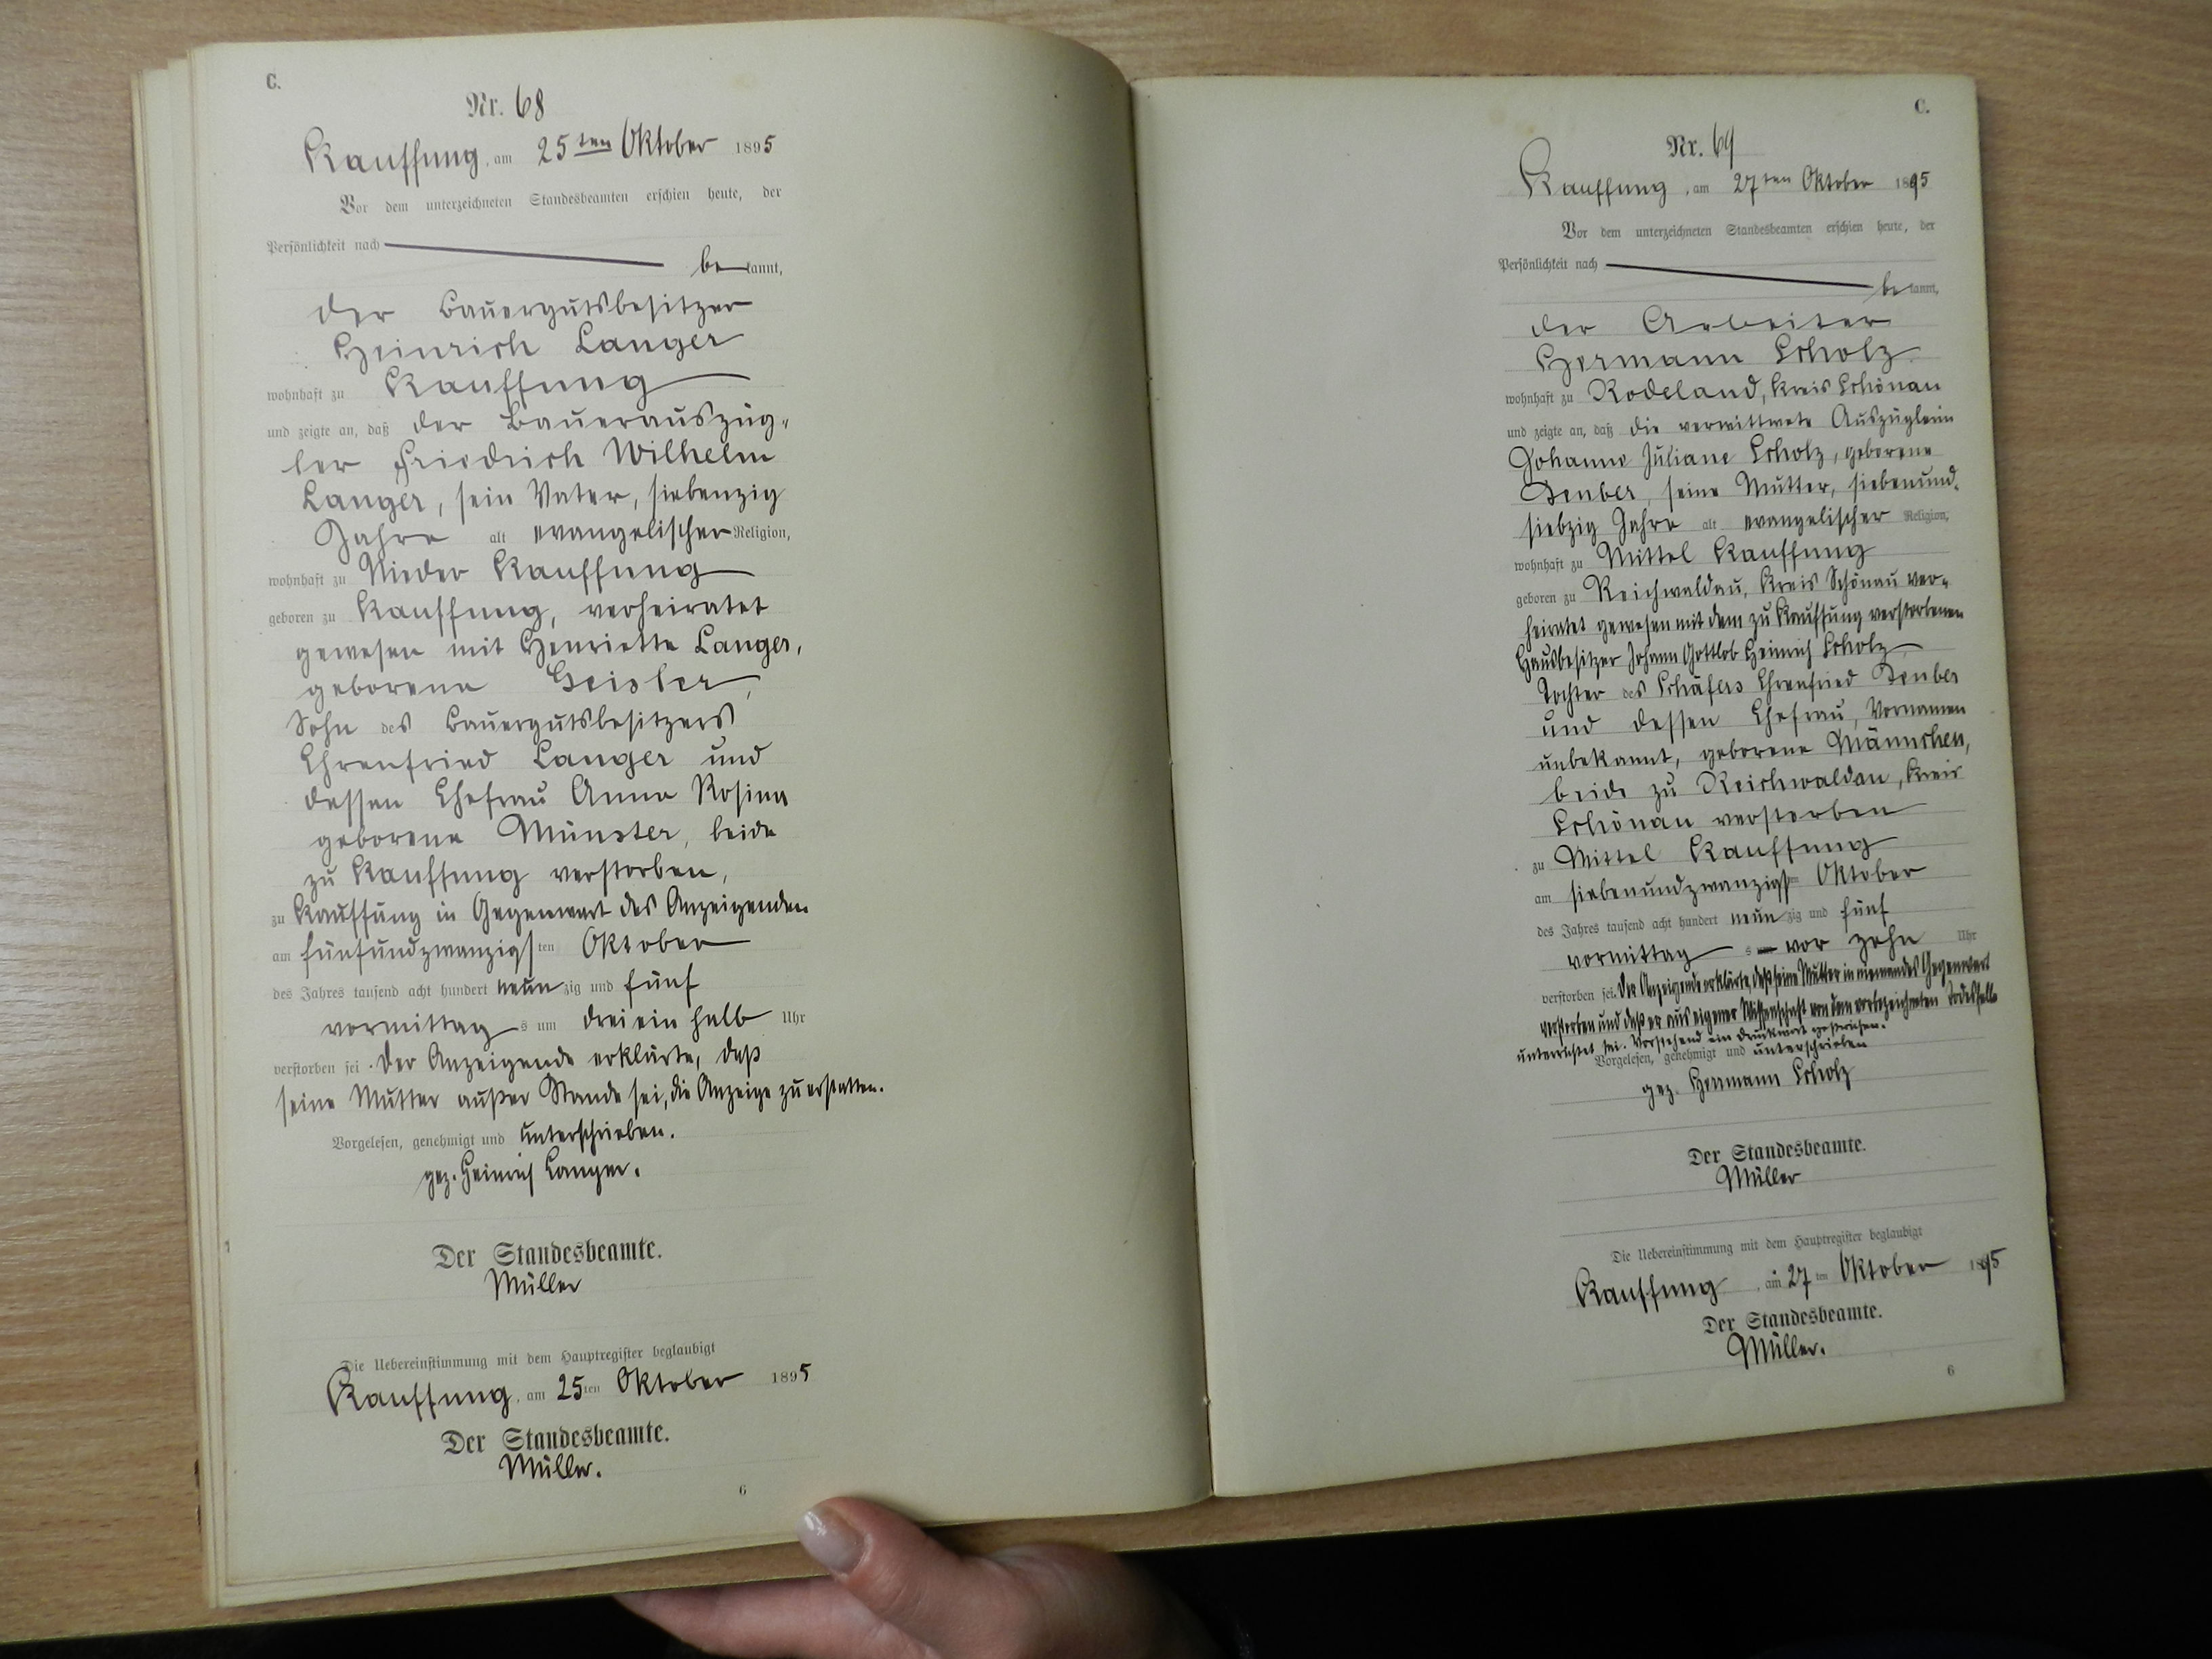 C.
Nr. 68
Kauffung, am 25ten Oktober 1895
Vor dem unterzeichneten Standesbeamten erschien heute, der
Persönlichkeit nach
be kannt,
der Bauergutsbesitzer
Heinrich Langer
wohnhaft zu Kauffung
und zeigte an, daß der Bauerauszüg-
ler Friedrich Wilhelm
Langer, sein Vater, siebenzig
Jahre alt evangelischer Religion,
wohnhaft zu Nieder Kauffung
geboren zu Kauffung, verheiratet
gewesen mit Henriette Langer,
geborene Geisler,
Sohn des Bauergutsbesitzers
Ehrenfried Langer und
dessen Ehefrau Anna Rosina
geborene Münster, beide
zu Kauffung verstorben,
zu Kauffung in Gegenwart des Anzeigenden
am fünfundzwanzigsten Oktober
des Jahres tausend acht hundert neunzig und fünf
vormittags um drei ein halb Uhr
verstorben sei. Der Anzeigende erklärte, daß
seine Mutter außer Stande sei, die Anzeige zu erstatten.
Vorgelesen, genehmigt und unterschrieben.
gez. Heinrich Langer.
Der Standesbeamte.
Müller
Die Uebereinstimmung mit dem Hauptregister beglaubigt
Kauffung, am 25ten Oktober 1895
Der Standesbeamte.
Müller.
6
C.
Nr. 69
Kauffung, am 27ten Oktober 1895
Vor dem unterzeichneten Standesbeamten erschien heute, der
Persönlichkeit nach
be kannt,
der Arbeiter
Hermann Scholz
wohnhaft zu Rodeland, Kreis Schönau
und zeigte an, daß die verwittwete Auszüglerin
Johanne Juliane Scholz, geborene
Deuber, seine Mutter, siebenund-
siebzig Jahre alt evangelischer Religion,
wohnhaft zu Mittel Kauffung
geboren zu Reichwaldau, Kreis Schönau ver-
heiratet gewesen mit dem zu Kauffung verstorbenen
Hausbesitzer Johann Gottlob Heinrich Scholz
Tochter des Schäfers Ehrenfried Deuber
und dessen Ehefrau, Vornamen
unbekannt, geborene Männchen,
beide zu Reichwaldau, Kreis
Schönau verstorben
zu Mittel Kauffung
am siebenundzwanzigsten Oktober
des Jahres tausend acht hundert neunzig und fünf
vormittags vor zehn Uhr
verstorben sei. Der Anzeigende erklärte, daß seine Mutter in niemandes Gegenwart
verstorben und daß er aus eigener Wissenschaft von dem vorbezeichneten Todesfalle
unterrichtet sei. Vorstehend ein Druckwort gestrichen.
Vorgelesen, genehmigt und unterschrieben
gez. Hermann Scholz
Der Standesbeamte.
Müller
Die Uebereinstimmung mit dem Hauptregister beglaubigt
Kauffung, am 27ten Oktober 1895
Der Standesbeamte.
Müller.
6